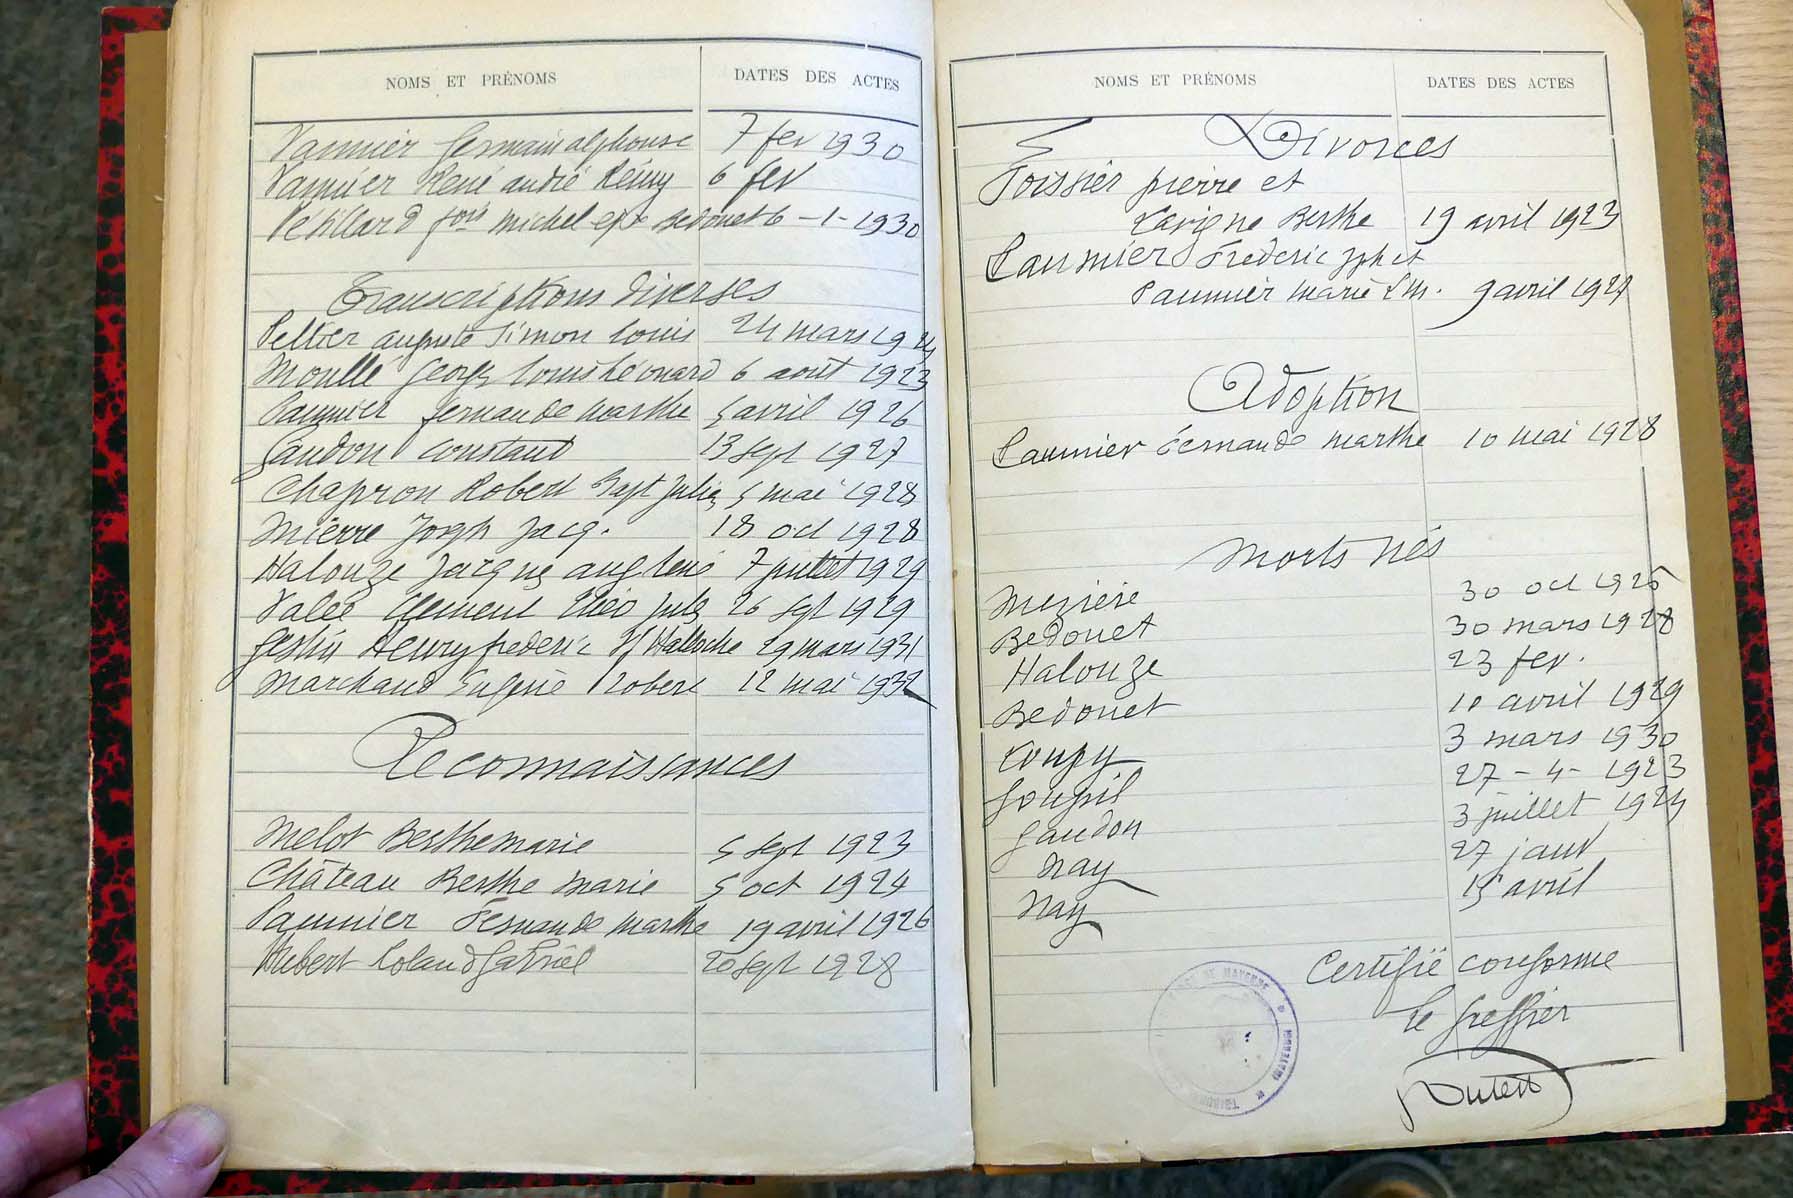 NOMS ET PRÉNOMS DATES DES ACTES
Vannier Germain alphonse 7 fev 1930
Vannier René andré Rémy 6 fev
Vétillard fois michel epx Bedouet 6-1-1930
Transcriptions diverses
Peltier auguste Simon Louis 24 mars 1924
Moullé Georges Louis Léonard 6 août 1923
Paumier fernande marthe 5 avril 1926
Gaudon Constant 13 sept 1927
Chapron Robert Bapt Julien 5 mai 1928
Mierre Joseph Jacq. 18 oct 1928
Halouze Jacques aug René 7 juillet 1929
Valée Clément Théo Jules 26 sept 1929
Gestin Henry frederic 29 mars 1931
Marchand Eugène Robert 12 mai 1932
Reconnaissances
Melot Berthe marie 5 sept 1923
Château Berthe Marie 5 oct 1924
Paumier Fernande Marthe 19 avril 1926
Hubert Roland Gabriel 20 sept 1928
NOMS ET PRÉNOMS DATES DES ACTES
Divorces
Poissier pierre et
Lavigne Berthe 19 avril 1923
Paumier Frederic Jph et
Paumier marie L m. 9 avril 1927
Adoption
Paumier Fernande marthe 10 mai 1928
Morts nés
Mezière 30 oct 1925
Bedouet 30 mars 1928
Halouze 23 fev.
Bedouet 10 avril 1929
Loupy 3 mars 1930
Goupil 27-4-1923
Gaudon 3 juillet 1924
Nay 27 janv
Nay 15 avril
Certifié conforme
Le Greffier
DE MAYENNE * MAYENNE * TRIBUNAL